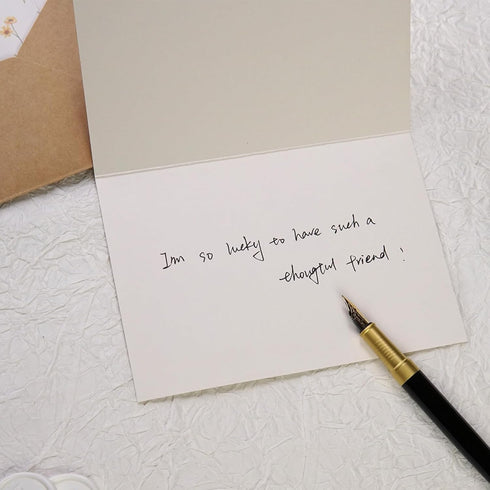 I'm so lucky to have such a
thougtul friend!